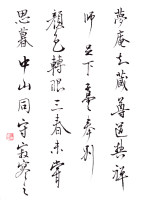 夢庵藏尊道契禅
師足下奉別
顏色轉眼三春未嘗
思慕中山同守寂寥之